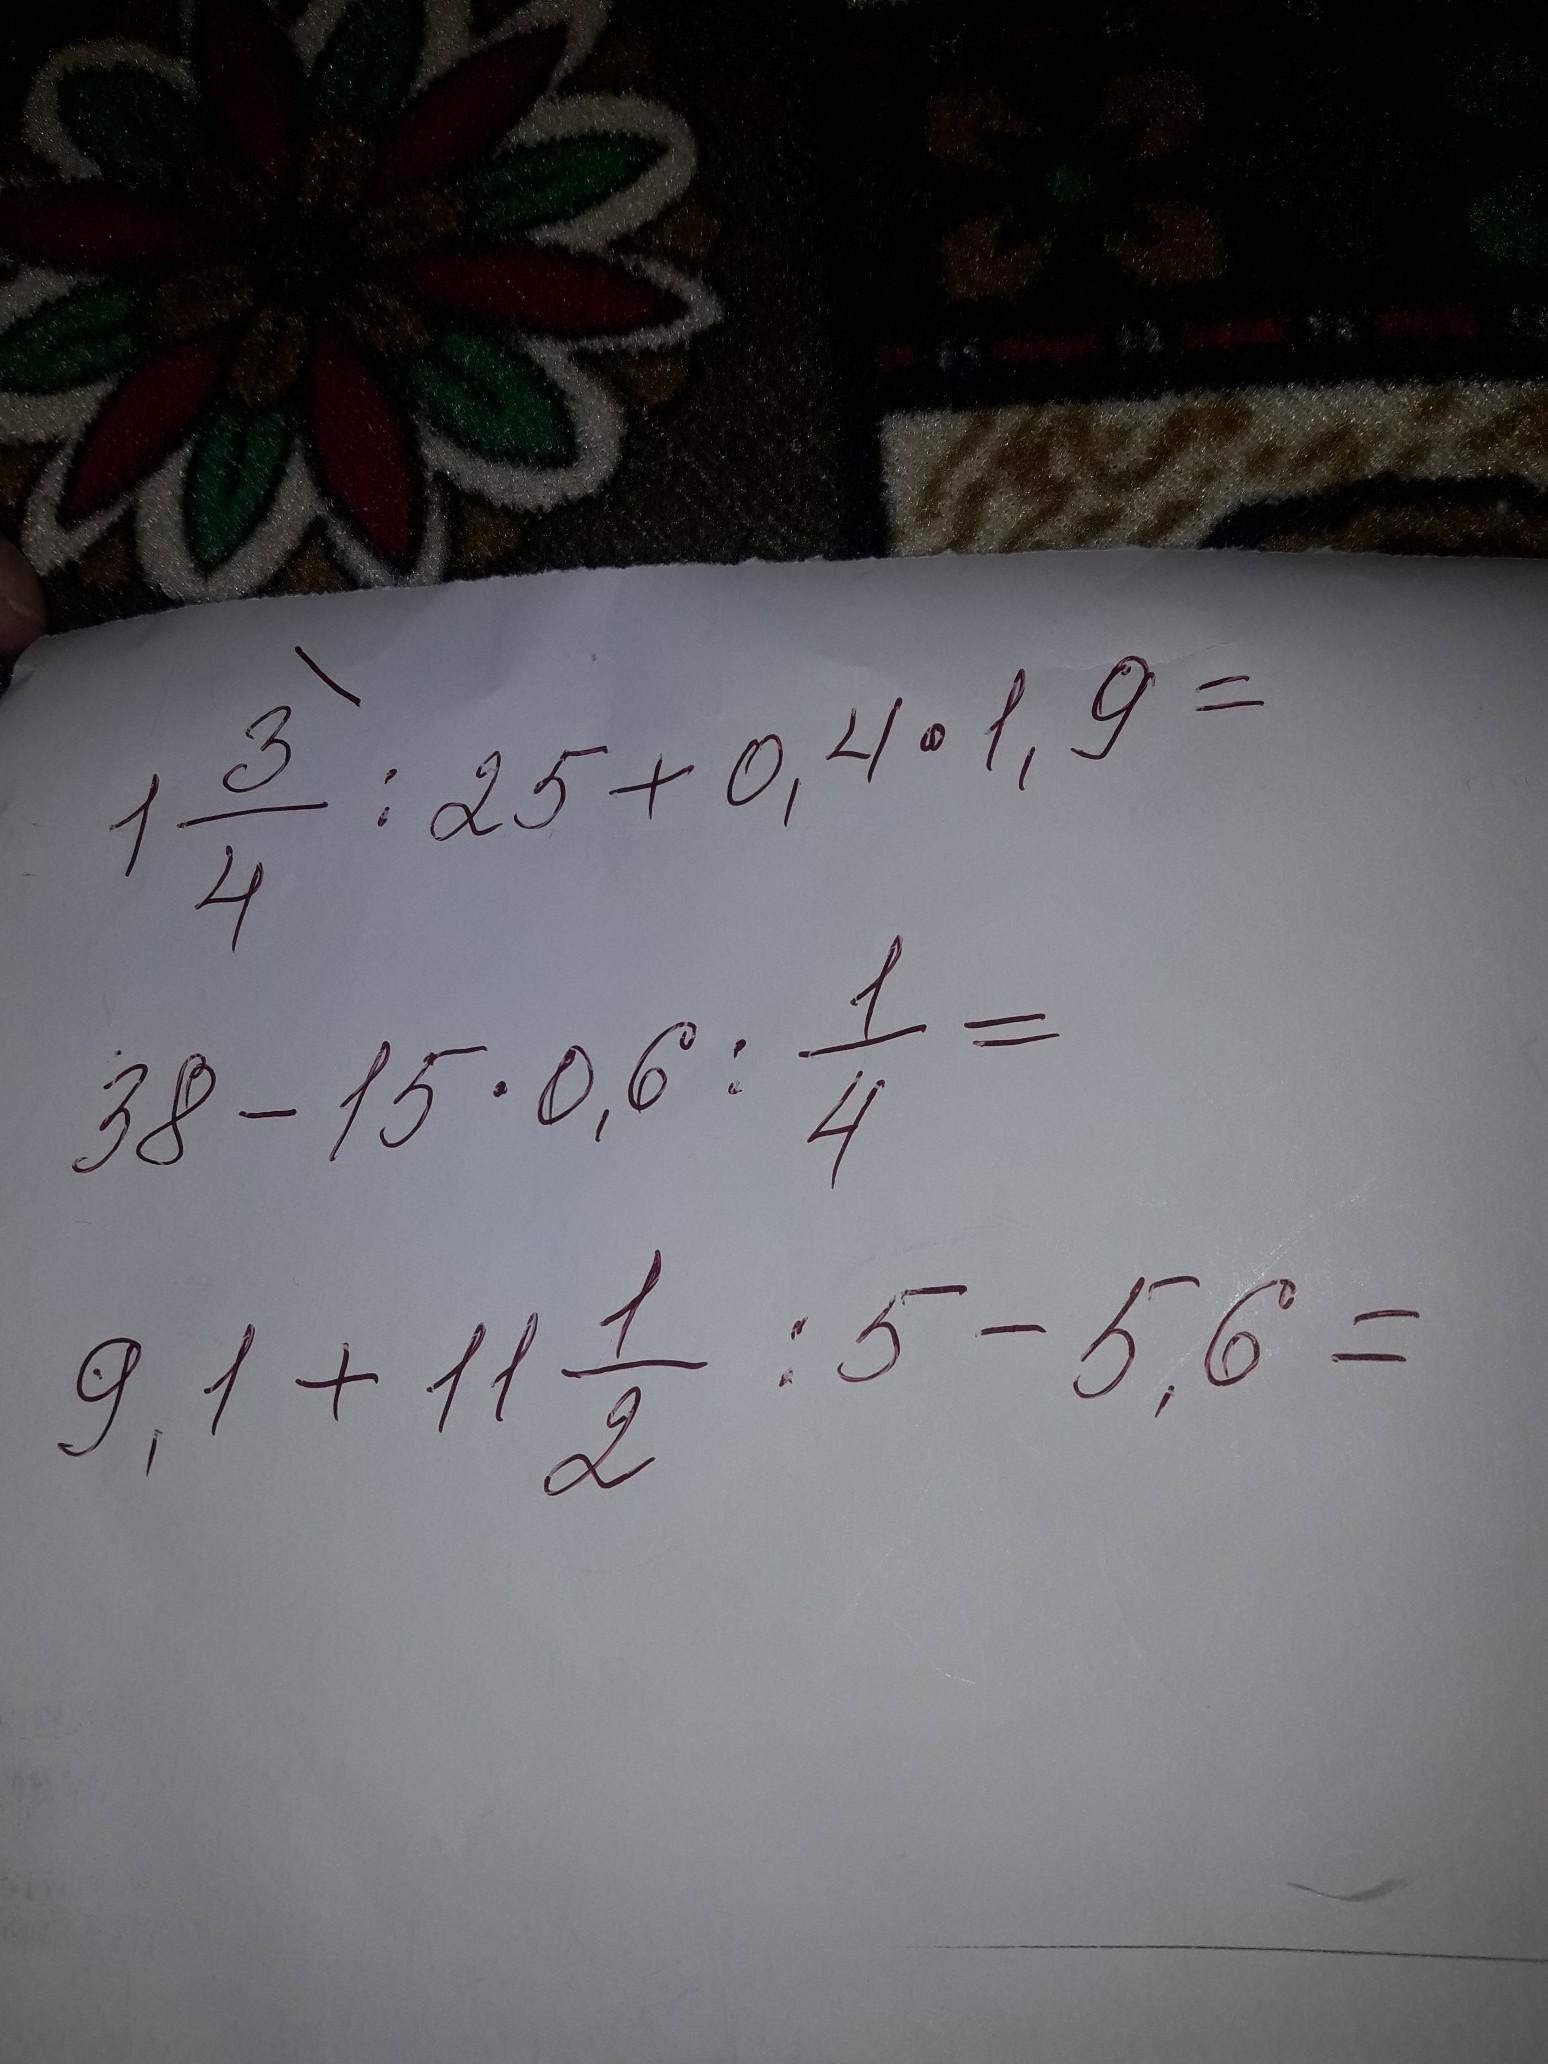 1 3/4 : 25 + 0,4 · 1,9 =
38 - 15 · 0,6 : 1/4 =
9,1 + 11 1/2 : 5 - 5,6 =